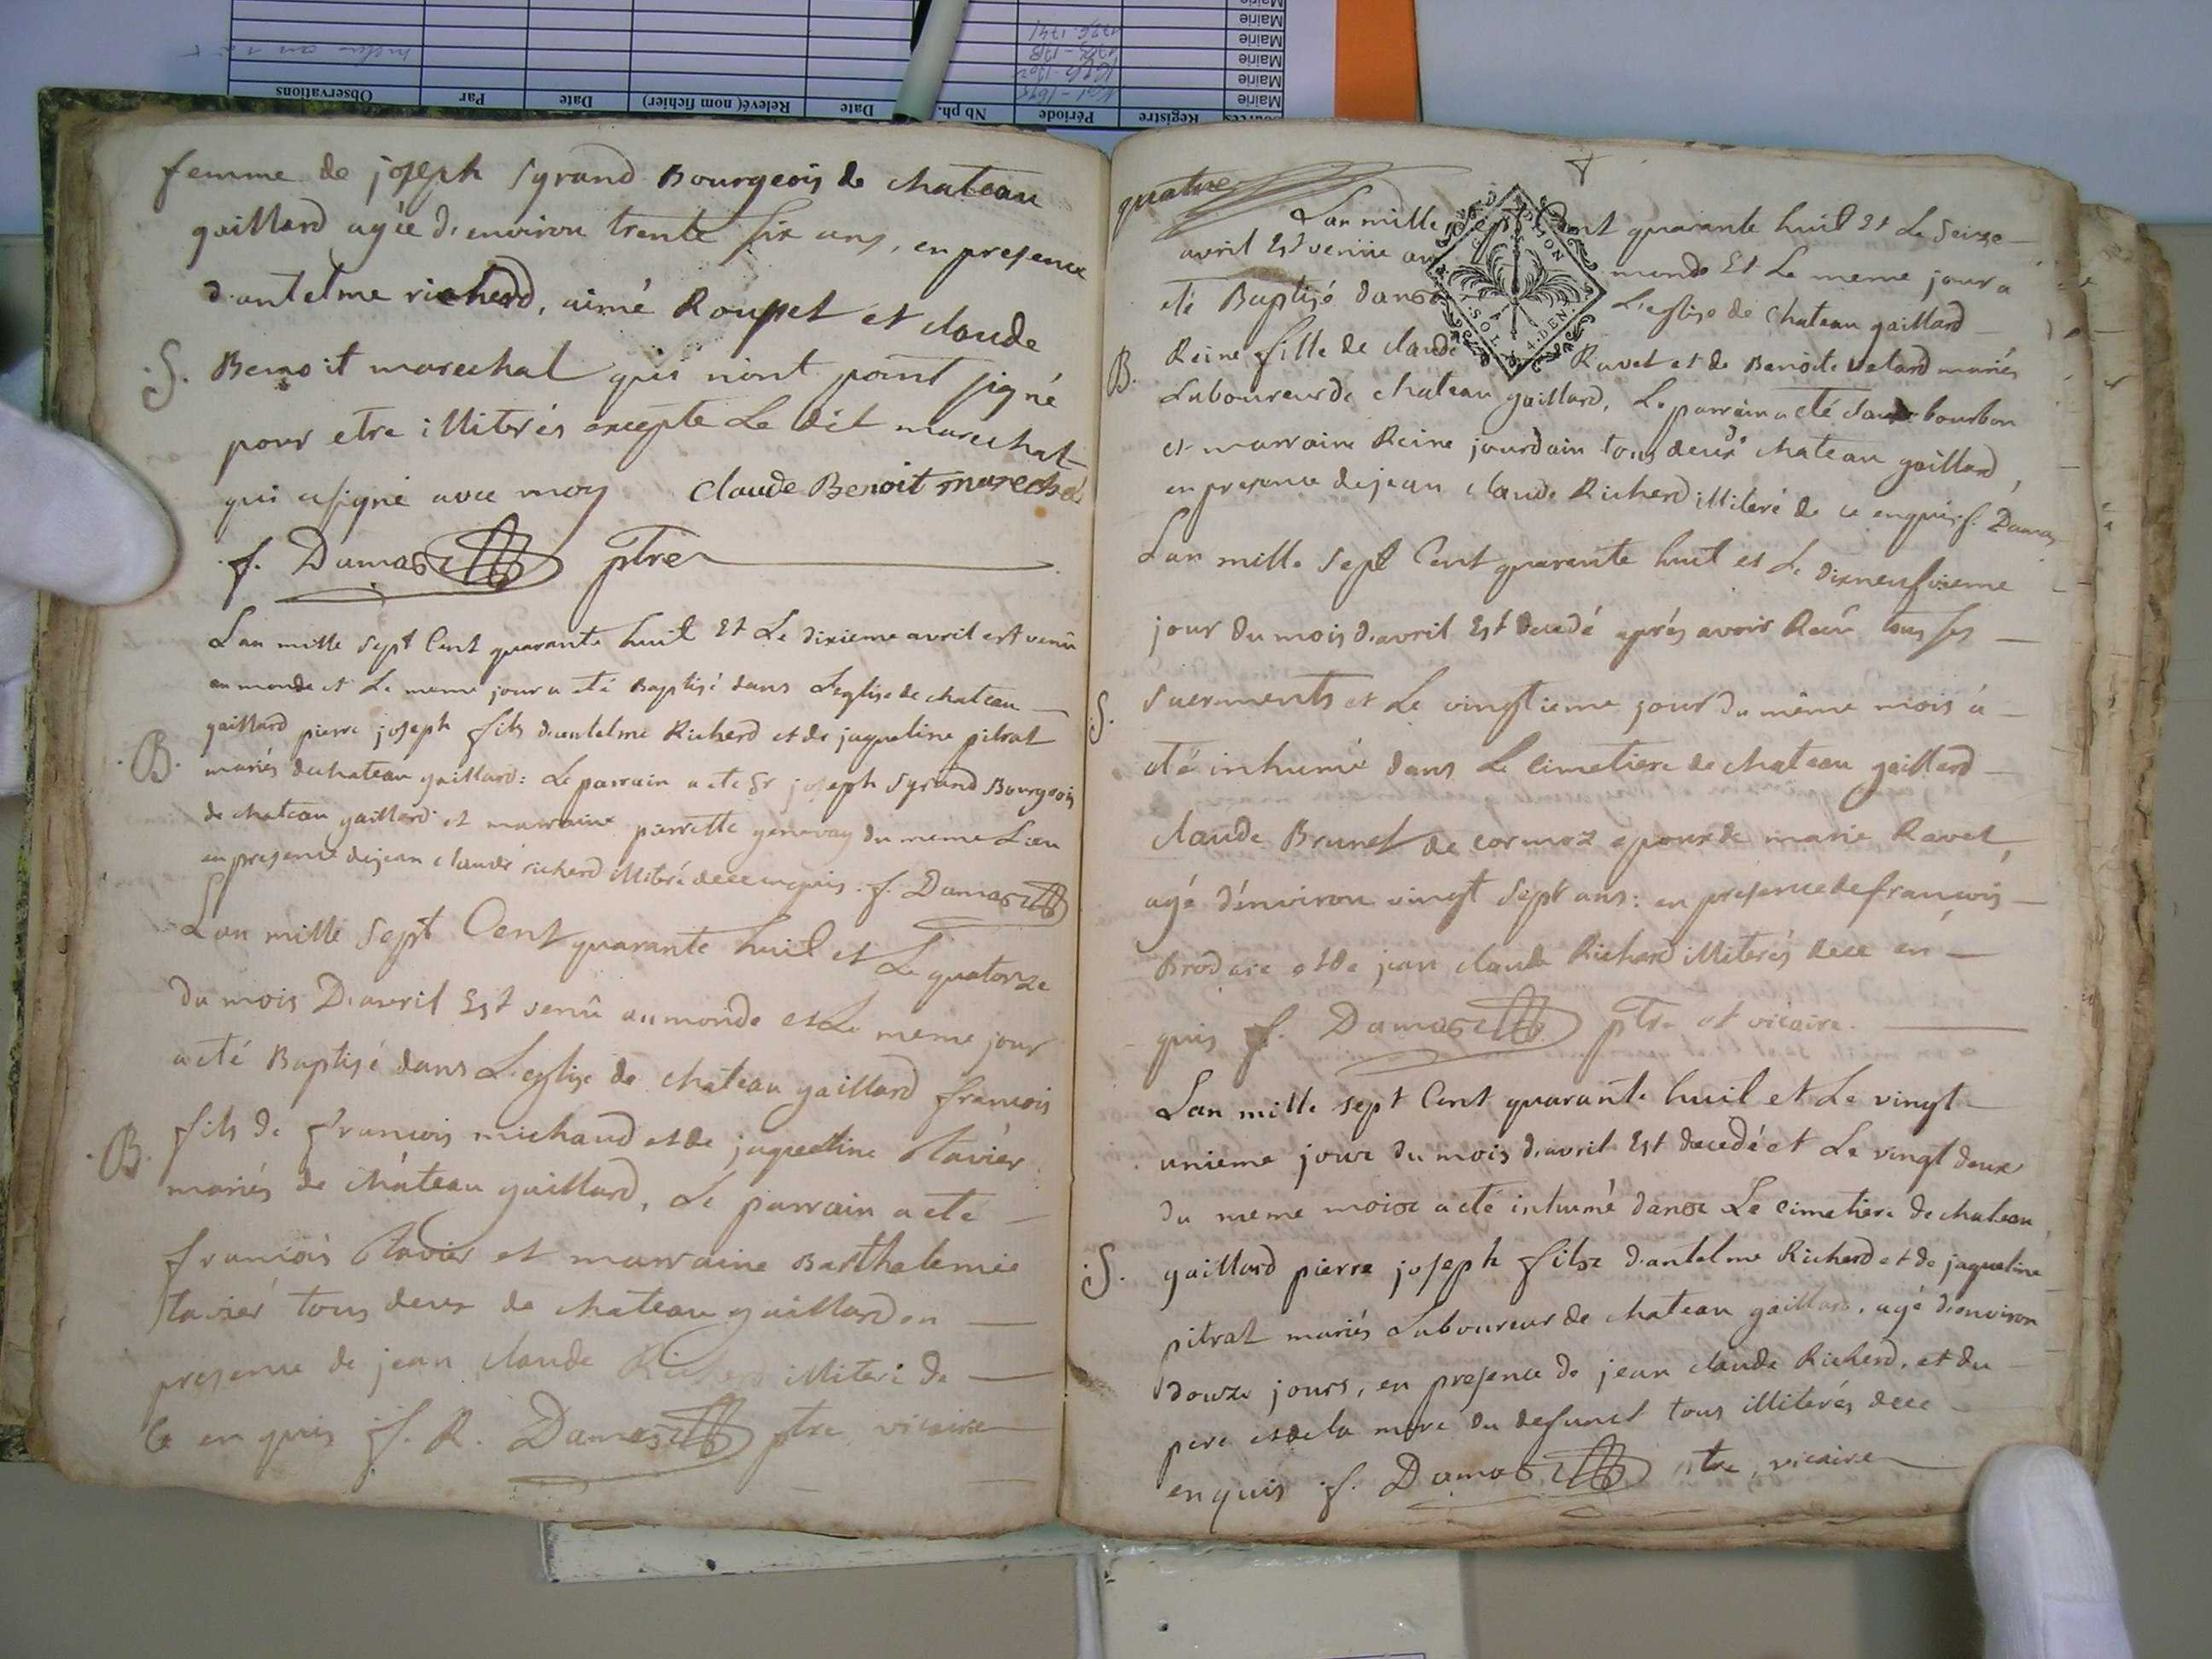 Observations Par Date Relevé (nom fichier) Date Nb ph. Période Registre
Mairie
Mairie
Mairie
Mairie
Mairie
femme de joseph Syrand Bourgeois de chateau
gaillard agée d'environ trente six ans, en presence
d'antelme richerd, aimé Roupet et claude
S. Benoit marechal qui n'ont point signé
pour etre illiterés excepte Le dit marechal
qui a signé avec moy claude Benoit marechal
f. Damas ptre
L'an mille sept Cent quarante huit Et Le dixieme avril est venû
au monde et Le meme jour a eté Baptisé dans L'eglise de chateau
gaillard pierre joseph fils d'antelme Richerd et de jaqueline pitrat
B. mariés de chateau gaillard : Le parrain a eté Sr joseph Syrand Bourgeois
de chateau gaillard et marraine pierrette genevay du meme Lieu
en presence de jean claude richerd illiteré de ce enquis. f. Damas
L'an mille Sept Cent quarante huit et Le quatorze
du mois D'avril Est venû au monde et Le meme jour
a eté Baptisé dans L'eglise de chateau gaillard francois
B. fils de francois michaud et de jaqueline Tavier
mariés de château gaillard, Le parrain a eté
francois Tavier et marraine Barthelemie
Tavier tous deux de chateau gaillard en
presence de jean claude Richerd illiteré de
Ce enquis f. R. Damas ptre vicaire
quatre
L'an mille sept Cent quarante huit Et Le Seize
avril Est veniie au monde Et Le meme jour a
eté Baptisé dans L'eglise de Chateau gaillard
B. Reine fille de claude Ravet et de Benoite Vetard mariés
SOL 4. DEN.
Laboureur de chateau gaillard, Le parrain a eté claude bourbon
et marraine Reine jourdain tous deux de chateau gaillard,
en presence de jean claude Richerd illiteré de ce enquis f. Damas
L'an mille Sept Cent quarante huit et Le dixneufvieme
jour du mois d'avril Est decedé aprés avoir Receu tous ses
S. Sacrements et Le vingtieme jour du même mois a
eté inhumé dans Le Cimetiere de chateau gaillard
claude Brunet de cormoz epoux de marie Ravet,
agé d'environ vingt Sept ans : en presence de francois
Brodere et de jean claude Richerd illiterés de ce en
quis f. Damas ptre et vicaire.
L'an mille sept Cent quarante huit et Le vingt
unieme jour du mois d'avril Est decedé et Le vingt deux
du meme mois a eté inhumé dans Le cimetiere de chateau
S. gaillard pierre joseph fils d'antelme Richerd et de jaqueline
pitrat mariés Laboureur de chateau gaillard, agé d'environ
douze jours, en presence de jean claude Richerd, et du
pere et de la mere du defunct tous illiterés de ce
enquis f. Damas ptre, vicaire